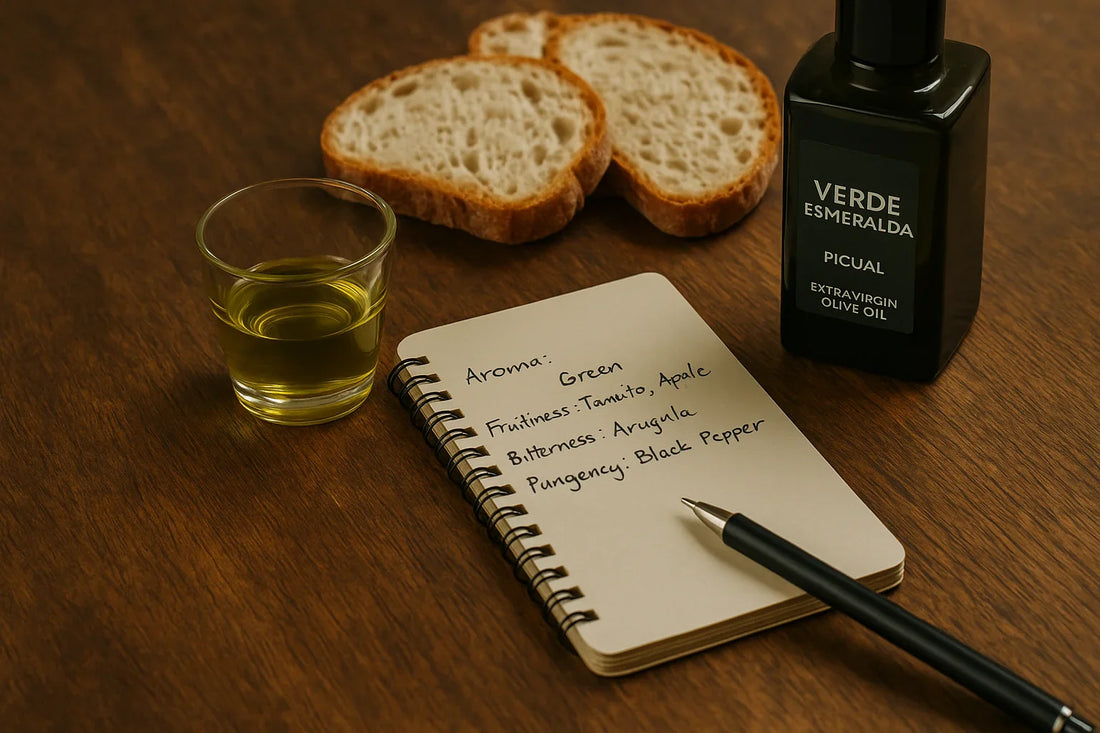 Aroma:
Green
Fruitiness: Tamuito, Apale
Bitterness: Arugula
Pungency: Black Pepper
VERDE
ESMERALDA
PICUAL
EXTRAVIRGIN
OLIVE OIL